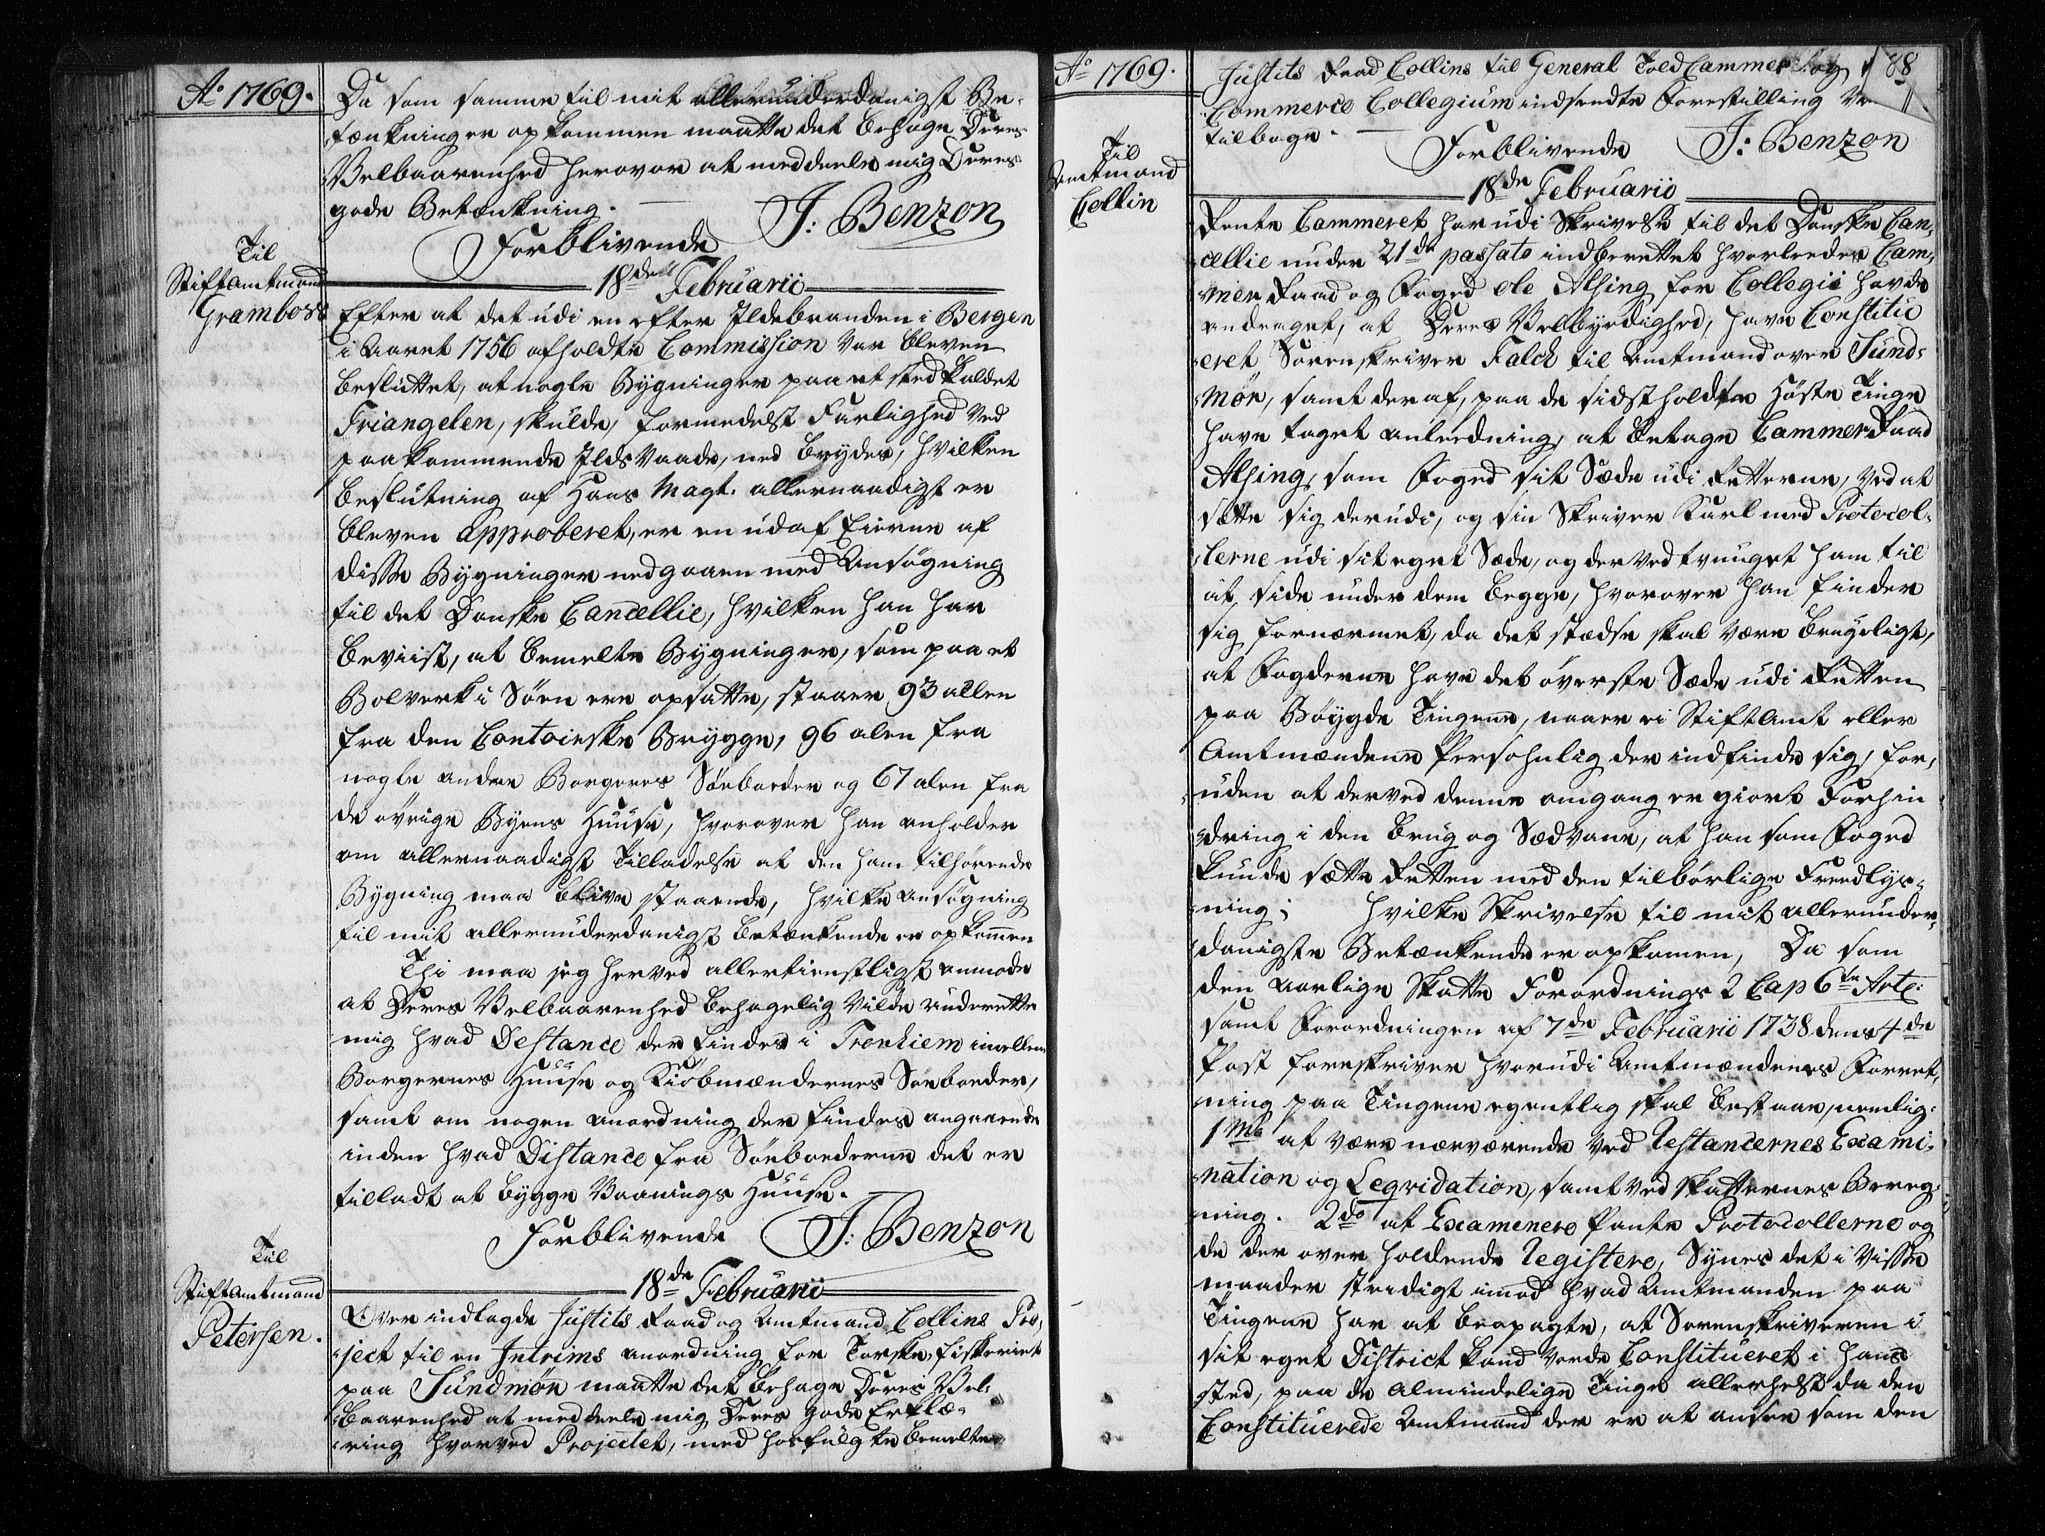 Ao 1769.
Da som samme til mit allerunderdanigst Be-
tænkninger opkommen maatte det behage Deres
Velbaarenhed herover at meddeele mig Deres
gode Betænkning.
Forblivende J: Benzon
18de Februarii
Til
Stiftamtmand
Grambow
Efter at det udi en efter Ildebranden i Bergen
i Aaret 1756 afholdte Commission var bleven
besluttet, at nogle Bygninger paa et sted kaldet
Triangelen, skulde, formedelst Farlighed ved
paakommende Ilds Vaade, ned brydes, hvilken
beslutning af Hans Mayt. allernaadigst er
bleven approberet, er en udaf Eierne af
disse Bygninger nedgaaen med Ansøgning
til det Danske Cancellie, hvilken han har
beviist, at bemelte Bygninger, som paa et
Bolverk i Søen ere opsatte, staaer 93 allen
fra den Contoirske Brygge, 96 alen fra
nogle andre Borgeres Søeboeder og 67 alen fra
de øvrige Byens Huuse, hvorover han anholder
om allernaadigst Tilladelse at den ham tilhørende
Bygning maa blive staaende, hvilke ansøgning
til mit allerunderdanigst betænkende er opkommen
Thi maa jeg herved allertienstligst anmode
at Deres Velbaarenhed behagelig vilde underrette
mig hvad Destance der findes i Tronhiem imellem
Borgernes Huuse og Kiøbmændernes Søeboeder,
samt om nogen anordning der findes angaaende
inden hvad Distance fra Søeboederne det er
tilladt at bygge Vaanings Huuse.
Forblivende J: Benzon
18de Februarii
Til
Stiftamtmand
Petersen.
Over indlagde Justits Raad og Amtmand Collins Pro-
ject til en Intrims anordning for Torske, fiskeriet
paa Sundmør maatte det behage Deres Vel-
baarenhed at meddeele mig Deres gode Erklæ-
ring hvorved Projectet, med hosfulgte bemelte
Ao 1769.
88
Justits Raad Collins til General Told Cammer og
Commerce Collegium indsendte Forestilling
tilbage.
Forblivende J: Benzon
18de Februarii
Til
Amtmand
Collin
Rente Cammeret har udi Skrivelse til det Danske Can-
cellie under 21de passato indberettet hvorleedes Cam-
mer Raad og Foged Ole Alsing for Collegii havde
andraget, at Deres Velbyrdighed, have Constitu
eret Sorenskriver Falck til Amtmand over Sund-
mør, samt deraf, paa de sidstholdte Høste Tinge
have taget anleedning, at betage Cammer Raad
Alsing, som Foged sit Sæde udi Retterne, ved at
sætte sig derudi, og sin Skriver Karl med Protocol-
lerne udi sit eget Sæde, og derved tvunget ham til
at side under dem begge, hvorover han finder
sig fornærmet, da det stædse skal være brugeligt,
at Fogderne have det øverste Sæde udi Retten
paa Bøygde Tingene, naaer ei Stiftamt eller
Amtmændene Persohnlig der indfinde sig, for-
uden at derved denne omgang er giort Forhin
dring i den brug og Sædvane, at han som Foged
kunde sætte Retten med den tilbørlige Freedlys-
ning; hvilke Skrivelse til mit allerunder-
danigste Betænkende er opkomen, Da som
den aarlige Skatte Forordnings 2 Cap 6te Artc:
samt Forordningen af 7de Februarii 1738 dens 4de
Post foreskriver hvorudi Amtmændenes Forret-
ning paa Tingene egentlig skal bestaae, nemlig:
1mo at være nærværende ved Restancernes Exami-
nation og Leqvidation, samt ved skatternes Bereg-
ning. 2do at Examinere Pante Protocollerne og
de der over holdende Registere, Synes det i visse
maader stridigt imod hvad Amtmanden paa
Tingene har at beopagte, at Sorenskriveren i
sit eget District kand vorde Constitueret i hans
sted, paa de almindelige Tinge allerhelst da den
Constituerede Amtmand der er at ansee som den